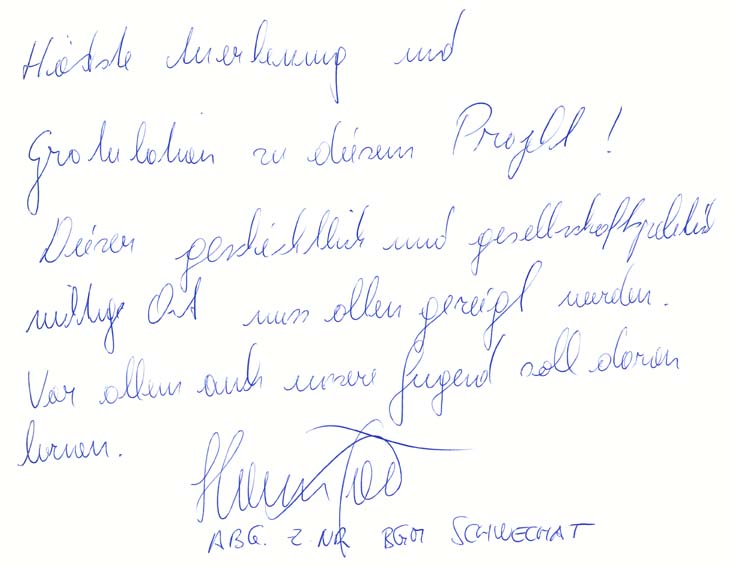 Höchste Anerkennung und
Gratulation zu diesem Projekt!
Dieser geschichtlich und gesellschaftspolitisch
wichtige Ort muss allen gezeigt werden.
Vor allem auch unsere Jugend soll daran
lernen.
ABG. Z. NR BGM SCHWECHAT